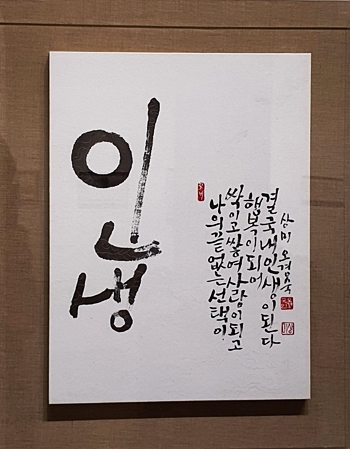 인생
나의 끝없는 선택이
쌓이고 쌓여 사람이 되고
행복이 되며
결국 내 인생이 된다